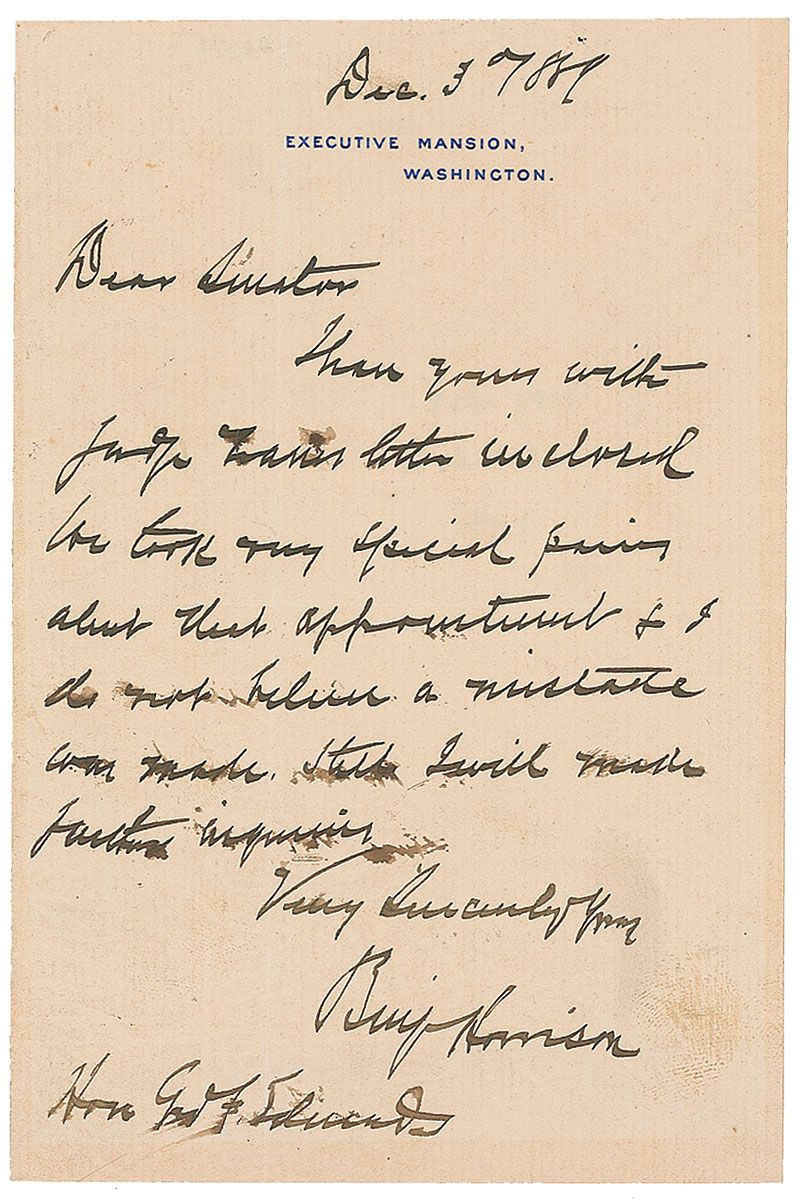 Dec. 3d 1889
EXECUTIVE MANSION,
WASHINGTON.
Dear Senator
I have yours with
Judge letter inclosed
We took very special pains
about that appointment & I
do not believe a mistake
was made. Still I will make
further inquiries
Very Sincerely Yours
Benj Harrison
Hon Geo F. Edmunds